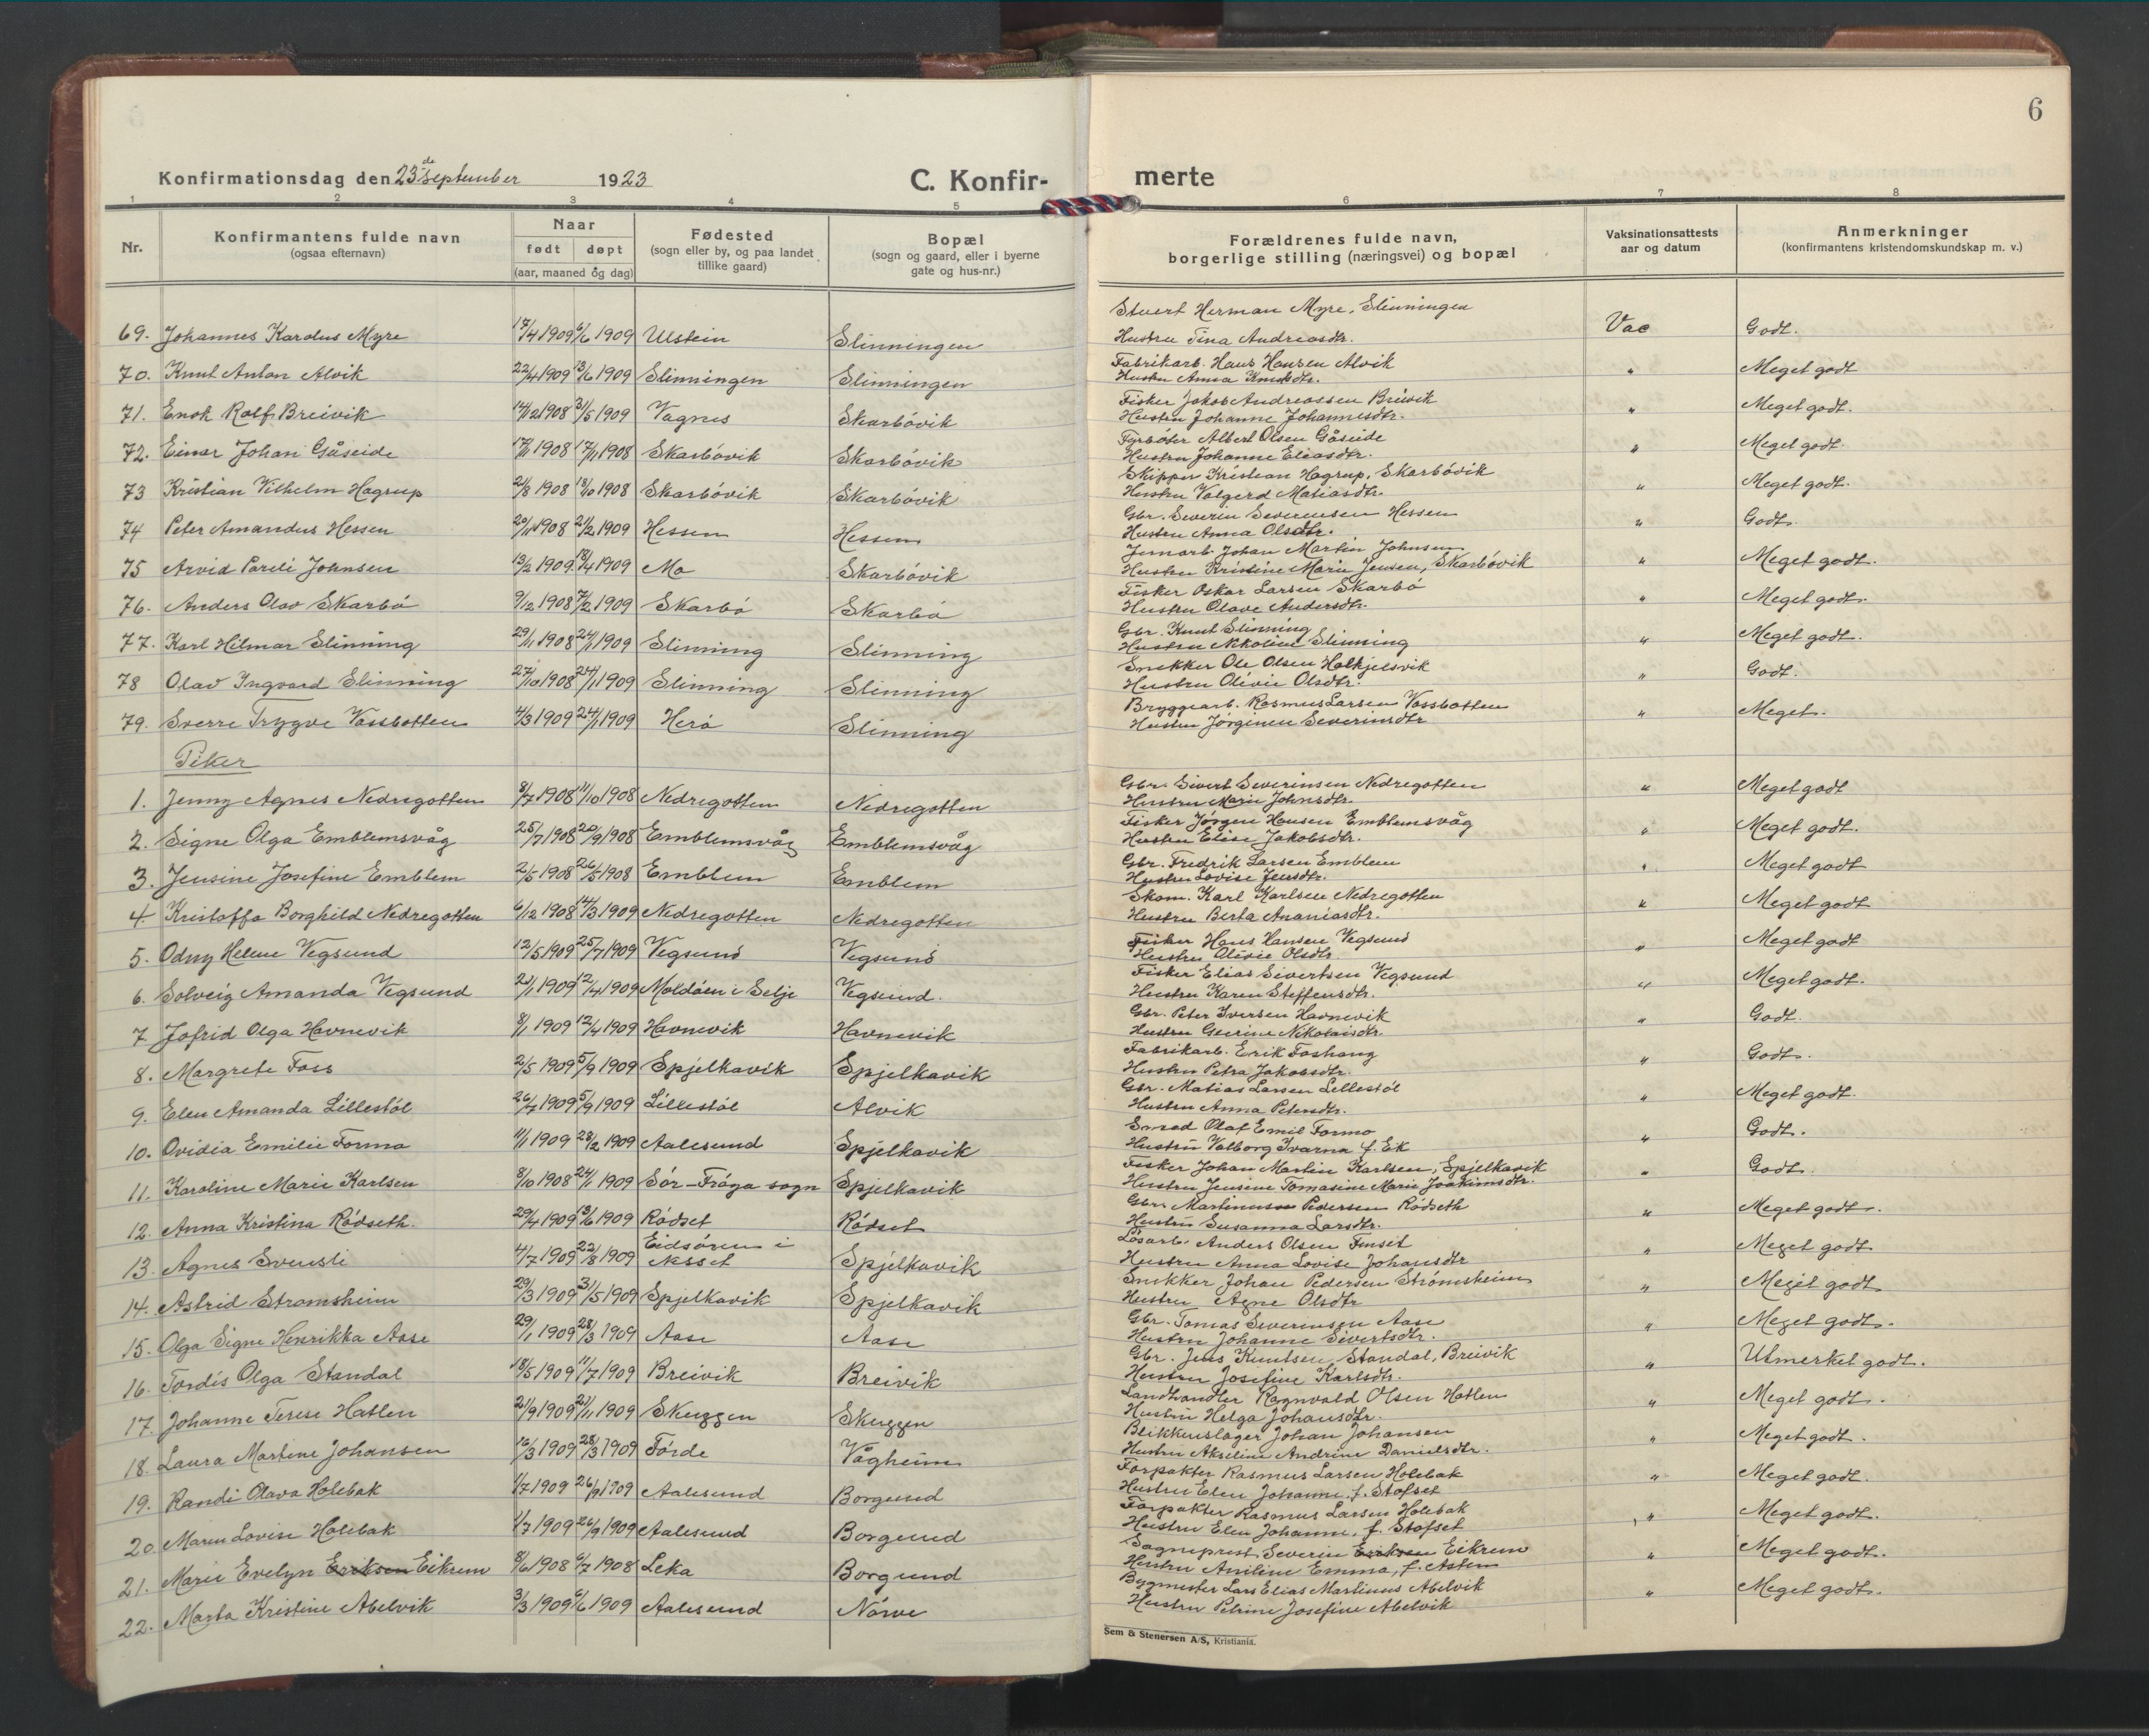 6
Konfirmationsdag den 23de september 1923
C. Konfir-
merte
1 2 3 4 5 6 7 8
Nr.
Konfirmantens fulde navn
(ogsaa efternavn)
Naar
født døpt
(aar, maaned og dag)
Fødested
(sogn eller by, og paa landet
tillike gaard)
Bopæl
(sogn og gaard, eller i byerne
gate og hus-nr.)
Forældrenes fulde navn,
borgerlige stilling (næringsvei) og bopæl
Vaksinationsattests
aar og datum
Anmerkninger
(konfirmantens kristendomskundskap m. v.)
Stuert Herman Myre, Slinningen
69. Johannes Karolus Myre 17/4 1909 6/6 1909 Ulstein Slinningen Hustru Tina Andreasdtr. Vac Godt.
70. Knut Anton Alvik 22/4 1909 13/6 1909 Slinningen Slinningen Fabrikarb. Hans Hansen Alvik " Meget godt
Hustru Anna Knutsdtr.
71. Enok Rolf Breivik 14/12 1908 31/5 1909 Vagnes Skarbövik Fisker Jakob Andreassen Breivik " Meget godt.
Hustru Johanne Johannesdtr.
72. Einar Johan Gåseide 17/9 1908 17/11 1908 Skarbövik Skarbövik Fyrböter Albert Olsen Gåseide " Meget godt.
Hustru Johanne Eliasdtr.
73 Kristian Vilhelm Hagrup 21/8 1908 18/10 1908 Skarbövik Skarbövik Skipper Kristian Hagrup, Skarbövik " Meget godt.
Hustru Valgerd Matiasdtr.
74 Peter Amandus Hessen 20/11 1908 21/2 1909 Hessen Hessen Gbr. Severin Severinsen Hessen " Godt.
Hustru Anna Olsdtr.
75 Arvid Pareli Johnsen 13/2 1909 18/4 1909 Mo Skarbövik Jernarb. Johan Martin Johnsen " Meget godt.
Hustru Kristine Marie Jensen, Skarbövik
76. Anders Olav Skarbö 9/12 1908 7/2 1909 Skarbö Skarbö Fisker Oskar Larsen Skarbö " Meget godt.
Hustru Olave Andersdtr.
77. Karl Hilmar Slinning 29/11 1908 24/1 1909 Slinning Slinning Gbr. Knut Slinning " Meget godt.
Hustru Nikoline Slinning
78 Olav Ingvard Slinning 27/10 1908 24/1 1909 Slinning Slinning Snekker Ole Olsen Holkjelsvik " Godt.
Hustru Olivie Olsdtr.
79. Sverre Trygve Vassbotten 4/3 1909 24/1 1909 Herö Slinning Bryggearb. Rasmus Larsen Vassbotten " Meget.
Hustru Jørginen Severinsdtr
Piker
1. Jenny Agnes Nedregotten 8/7 1908 11/10 1908 Nedregotten Nedregotten Gbr. Sivert Severinsen Nedregotten " Meget godt
Hustru Marie Johnsdtr.
2. Signe Olga Emblemsvåg 25/7 1908 20/9 1908 Emblemsvåg Emblemsvåg Fisker Jörgen Hansen Emblemsvåg " Meget godt.
Hustru Elise Jakobsdtr.
3. Jensine Josefine Emblem 2/5 1908 26/5 1908 Emblem Emblem Gbr. Fredrik Larsen Emblem " Meget godt
Hustru Lovise Jensdtr.
4 Kristoffa Borghild Nedregotten 6/12 1908 14/3 1909 Nedregotten Nedregotten Skom. Karl Karlsen Nedregotten " Meget godt
Hustru Berta Ananiasdtr.
5. Odny Helene Vegsund 12/5 1909 25/7 1909 Vegsund Vegsund Fisker Hans Hansen Vegsund " Meget godt
Hustru Olivie Olsdtr
6. Solveig Amanda Vegsund 21/1 1909 12/4 1909 Moldöen i Selje Vegsund. Fisker Elias Sivertsen Vegsund " Meget godt.
Hustru Karen Steffensdtr.
7. Jofrid Olga Havnevik 8/1 1909 12/4 1909 Havnevik Havnevik Gbr. Peter Iversen Havnevik " Godt.
Hustru Gurine Nikolaisdtr.
8. Margrete Foss 2/5 1909 5/9 1909 Spjelkavik Spjelkavik Fabrikarb. Erik Foshaug " Godt.
Hustru Petra Jakobsdtr.
9. Elen Amanda Lillestöl 26/7 1909 5/9 1909 Lillestöl Alvik Gbr. Matias Larsen Lillestöl " Meget godt.
Hustru Anna Petersdtr.
10. Ovidia Emilie Formo 11/1 1909 28/2 1909 Aalesund Spjelkavik Smed Olaf Emil Formo " Godt.
Hustru Valborg Ivarna f. Eik
11. Karoline Marie Karlsen 8/10 1908 24/1 1909 Sör-Fröya sogn Spjelkavik Fisker Johan Martin Karlsen, Spjelkavik " Godt.
Hustru Jensine Tomasine Marie Joakimsdtr.
12. Anna Kristina Rödseth. 29/4 1909 13/6 1909 Rödset Rödset Gbr. Martinus Pedersen Rödseth " Meget godt.
Hustru Susanna Larsdtr.
13. Agnes Svensli 4/7 1909 22/8 1909 Eidsören i Nesset Spjelkavik Lösarb. Anders Olsen Finset " Meget godt
Hustru Anna Lovise Johansdtr
14. Astrid Strömsheim 29/3 1909 31/5 1909 Spjelkavik Spjelkavik Snekker Johan Pedersen Strömsheim " Meget godt
Hustru Agne Olsdtr
15. Olga Signe Henrikka Aase 29/1 1909 28/3 1909 Aase Aase Gbr. Tomas Severinsen Aase " Meget godt.
Hustru Johanne Sivertsdtr.
16. Tordis Olga Standal 18/5 1909 11/7 1909 Breivik Breivik Gbr. Jens Knutsen Standal, Breivik " Utmerket godt.
Hustru Josefine Karlsdtr.
17. Johanne Terese Hatlen 21/9 1909 21/11 1909 Skuggen Skuggen Landhandler Ragnvald Olsen Hatlen " Meget godt.
Hustru Helga Johansdtr.
18. Laura Martine Johansen 16/3 1909 28/3 1909 Förde Vågheim Blikkenslager Johan Johansen " Meget godt.
Hustru Akseline Andrine Danielsdtr.
19. Randi Olava Holebak 1/7 1909 26/9 1909 Aalesund Borgund Forpakter Rasmus Larsen Holebak " Meget godt.
Hustru Elen Johanne, f. Stofset
20. Maren Lovise Holebak 1/7 1909 26/9 1909 Aalesund Borgund Forpakter Rasmus Larsen Holebak " Meget godt.
Hustru Elen Johanne, f. Stofset
21. Marie Evelyn Eriksen Eikrem 8/6 1908 6/7 1908 Leka Borgund Sogneprest Severin Eriksen Eikrem " Meget godt.
Hustru Aniline Emma, f. Astem
22. Marta Kristine Abelvik 3/3 1909 6/6 1909 Aalesund Nörve Bygmester Lars Elias Martinus Abelvik " Meget godt.
Hustru Petrine Josefine Abelvik
Sem & Stenersen A/S, Kristiania.